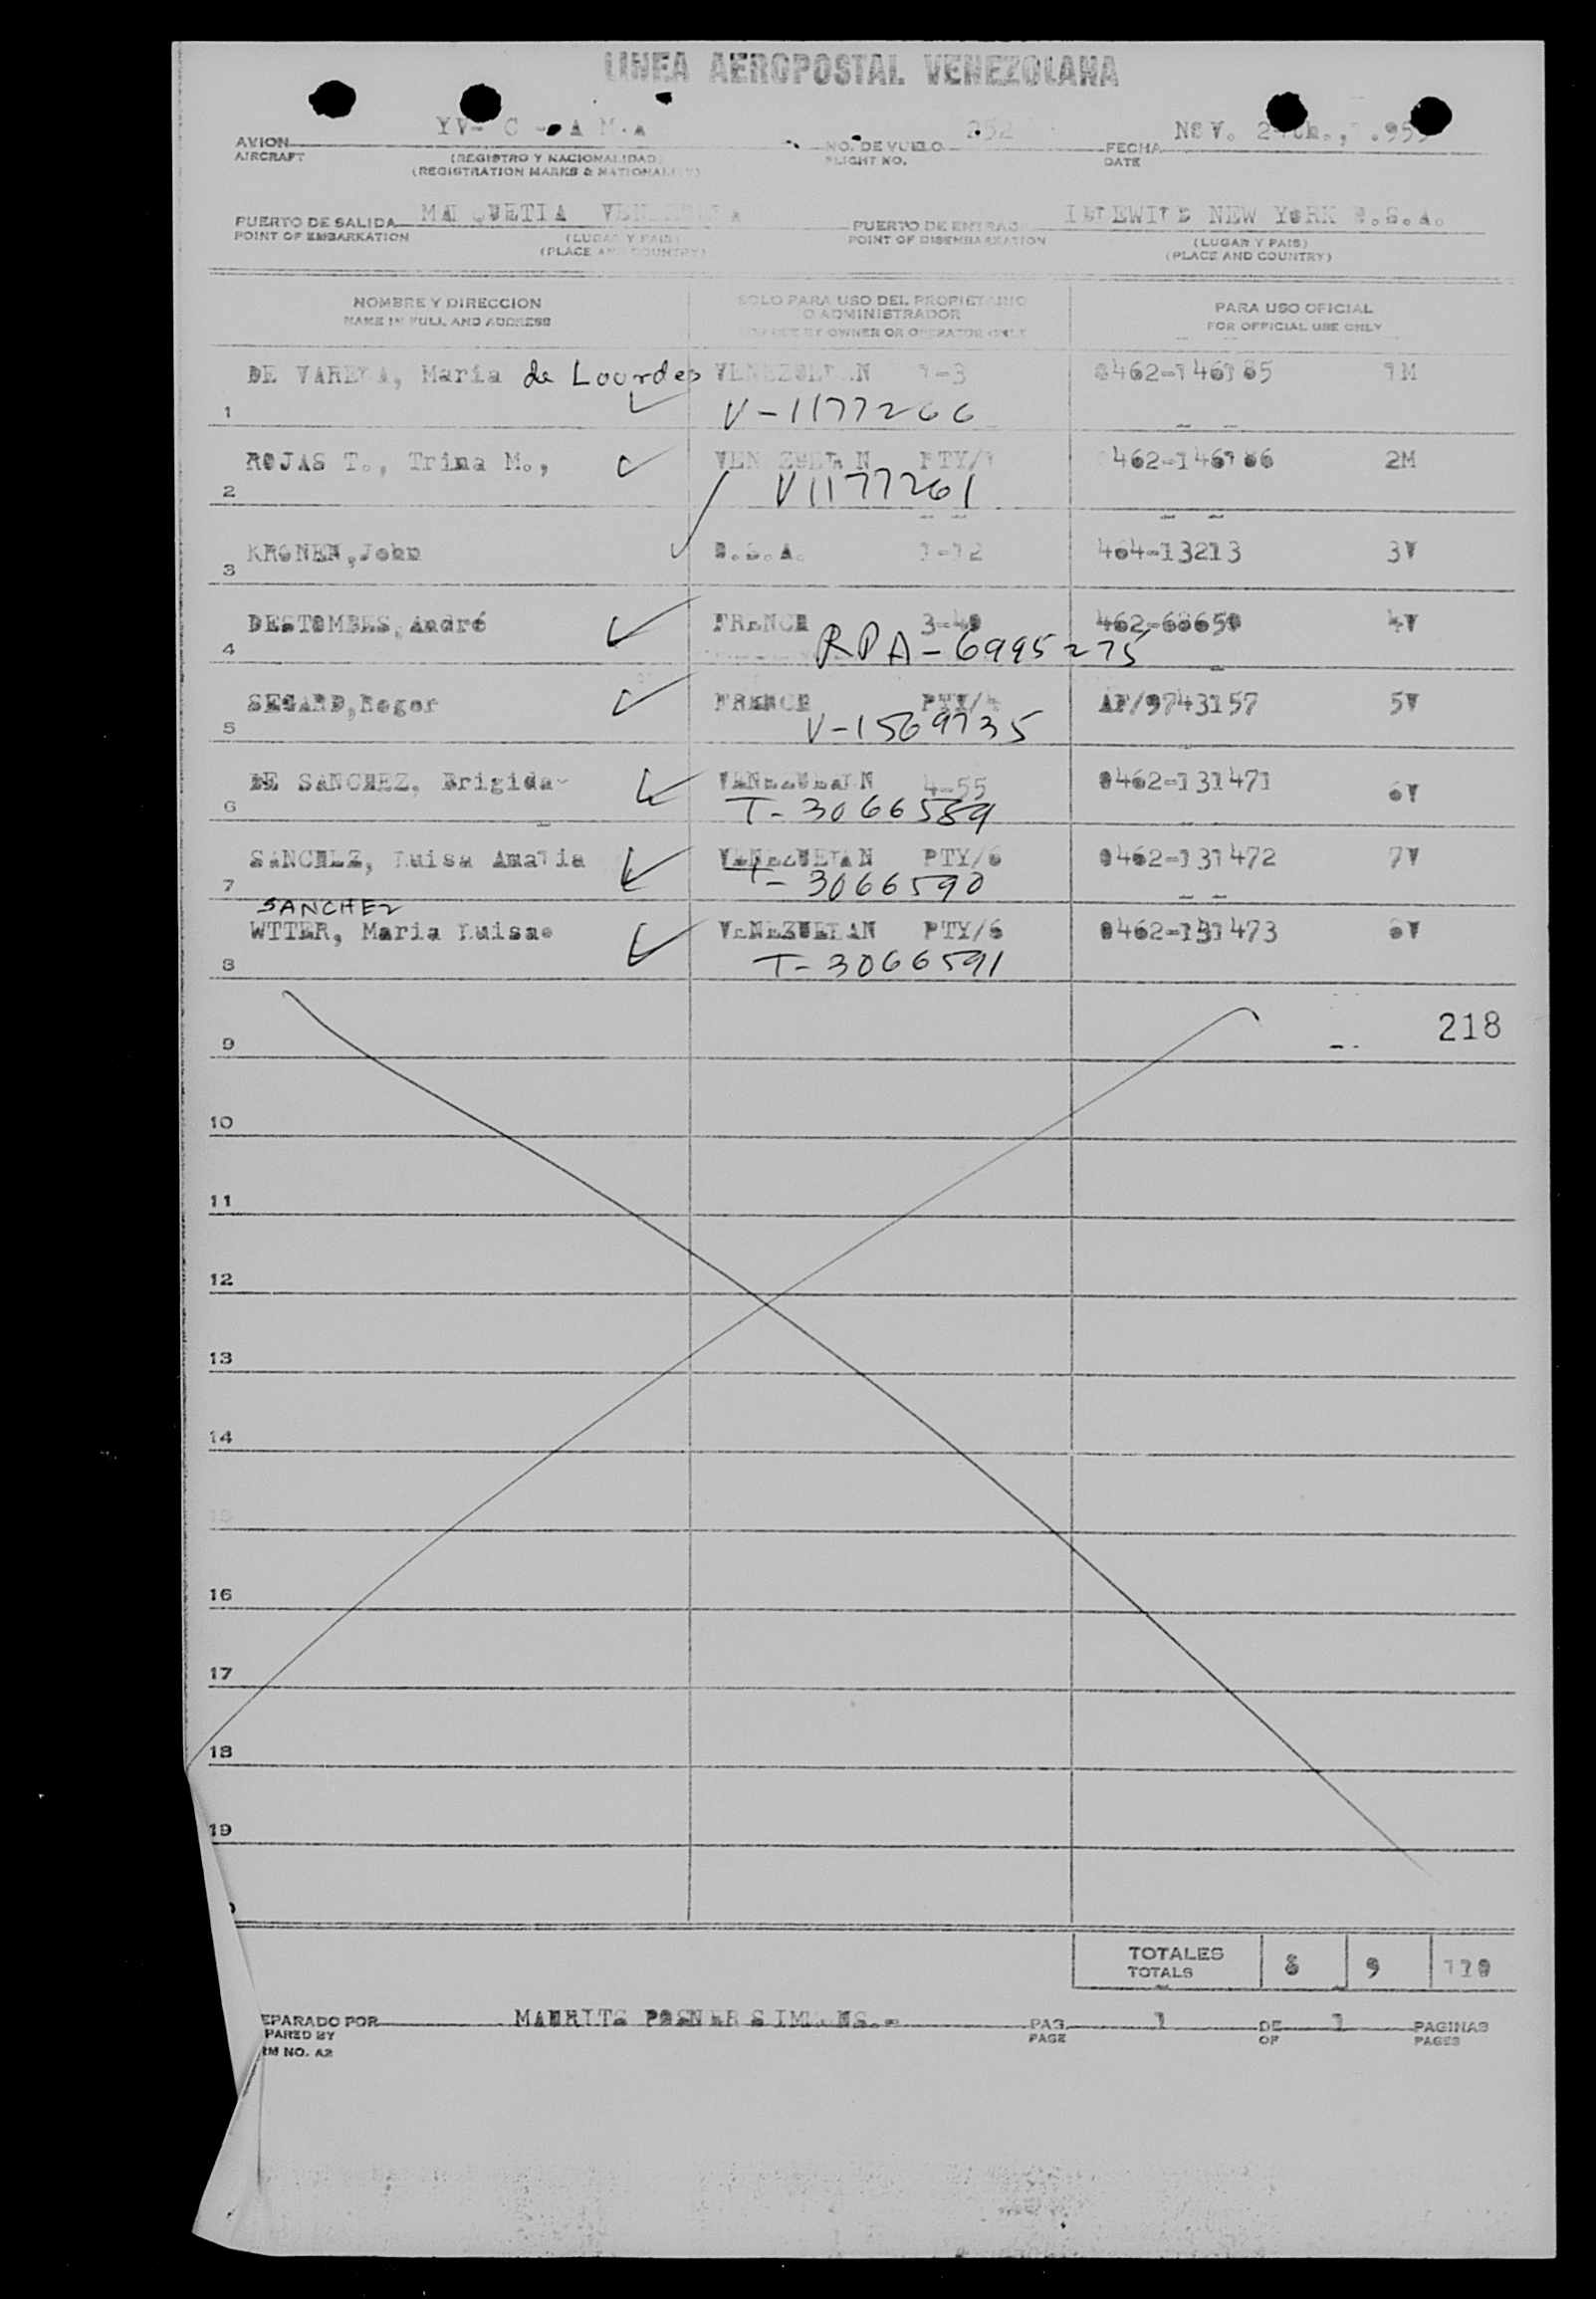 LINEA AEROPOSTAL VENEZOLANA
YV- C - A M A 252 NOV.
AVION NO. DE VUELO FECHA
AIRCRAFT (REGISTRO Y NACIONALIDAD) FLIGHT NO. DATE
(REGISTRATION MARKS & NATIONALITY)
MAIQUETIA VENEZUELA IDLEWILD NEW YORK U.S.A.
PUERTO DE SALIDA PUERTO DE ENTRADA
POINT OF EMBARKATION (LUGAR Y PAIS) POINT OF DISEMBARKATION (LUGAR Y PAIS)
(PLACE AND COUNTRY) (PLACE AND COUNTRY)
NOMBRE Y DIRECCION SOLO PARA USO DEL PROPIETARIO PARA USO OFICIAL
NAME IN FULL AND ADDRESS O ADMINISTRADOR FOR OFFICIAL USE ONLY
FOR USE BY OWNER OR OPERATOR ONLY
DE VARELA, Maria de Lourdes VENEZUELAN 1-3 0462-146185 1M
1 V-1177266
ROJAS T., Trina M., VENEZUELAN PTY/1 462-146186 2M
2 V1177261
3 KRONEN,John U.S.A. 1-12 464-13213 3V
DESTOMBES,André FRENCH 3-49 462-68650 4V
4 RPA-6995275
SEGARD,Roger FRENCH PTY/4 AF/9743157 5V
5 V-1569735
DE SANCHEZ, Brigida- VENEZUELAN 4-55 0462-131471 6V
6 T-3066589
SANCHEZ, Luisa Amalia VENEZUELAN PTY/6 0462-131472 7V
7 T-3066590
SANCHEZ
WTTER, Maria Luisa VENEZUELAN PTY/6 0462-131473 8V
8 T-3066591
218
9
10
11
12
13
14
15
16
17
18
19
TOTALES 8 9 110
TOTALS
EPARADO POR MAURITS POSNER SIMMONS.- PAG. 1 DE 1 PAGINAS
PARED BY PAGE OF PAGES
RM NO. A2